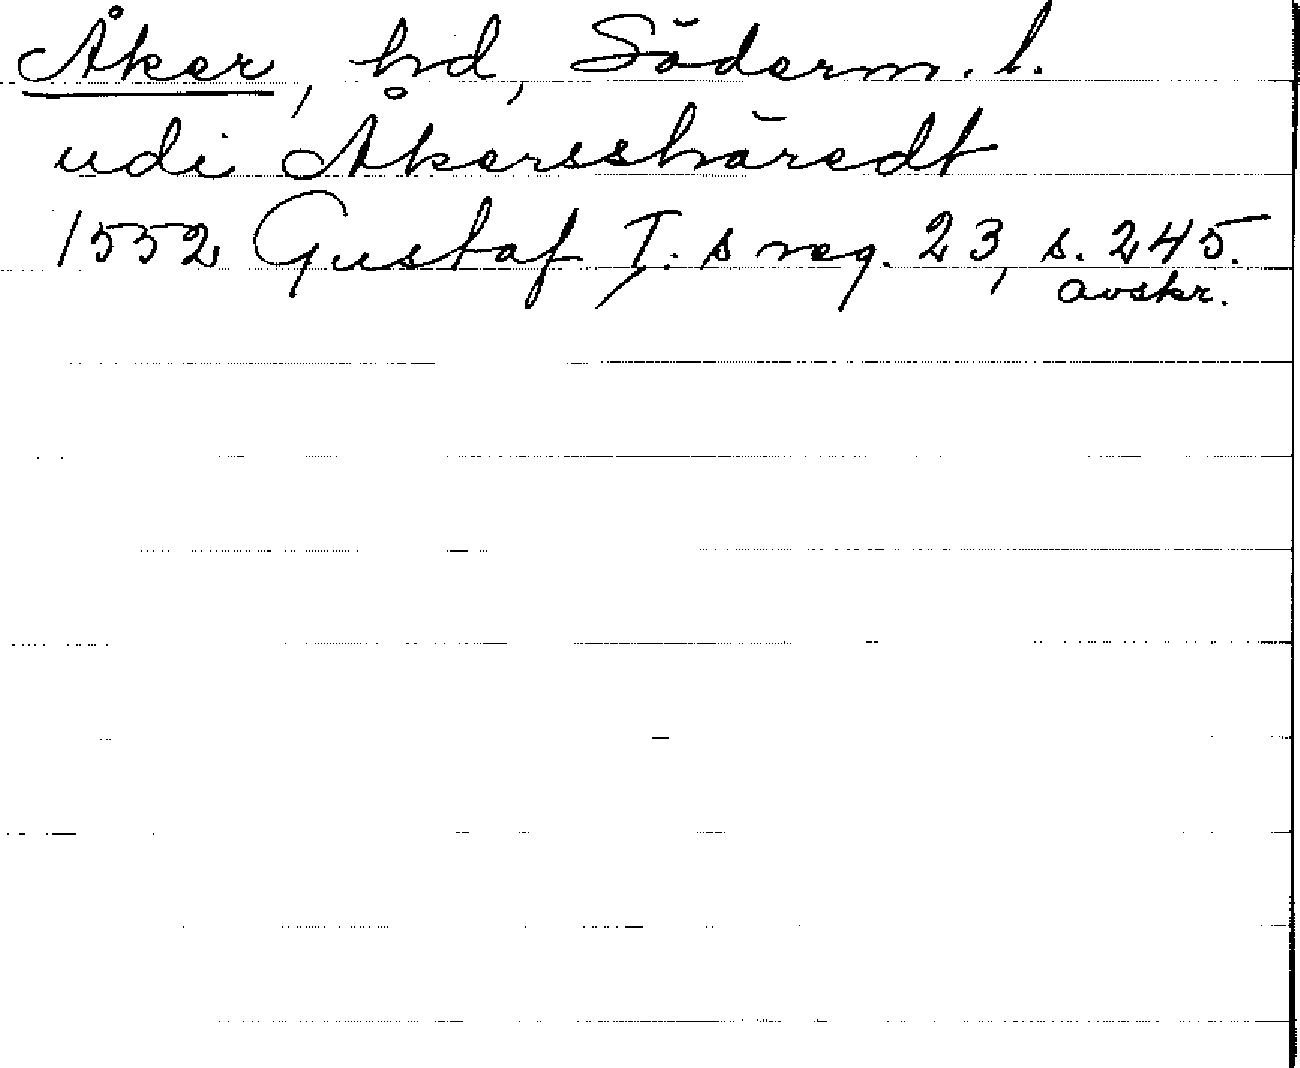 Åker, hd, Söderm. l.
udi Åkersshäredt
1552 Gustaf I. s reg. 23, s. 245.
avskr.